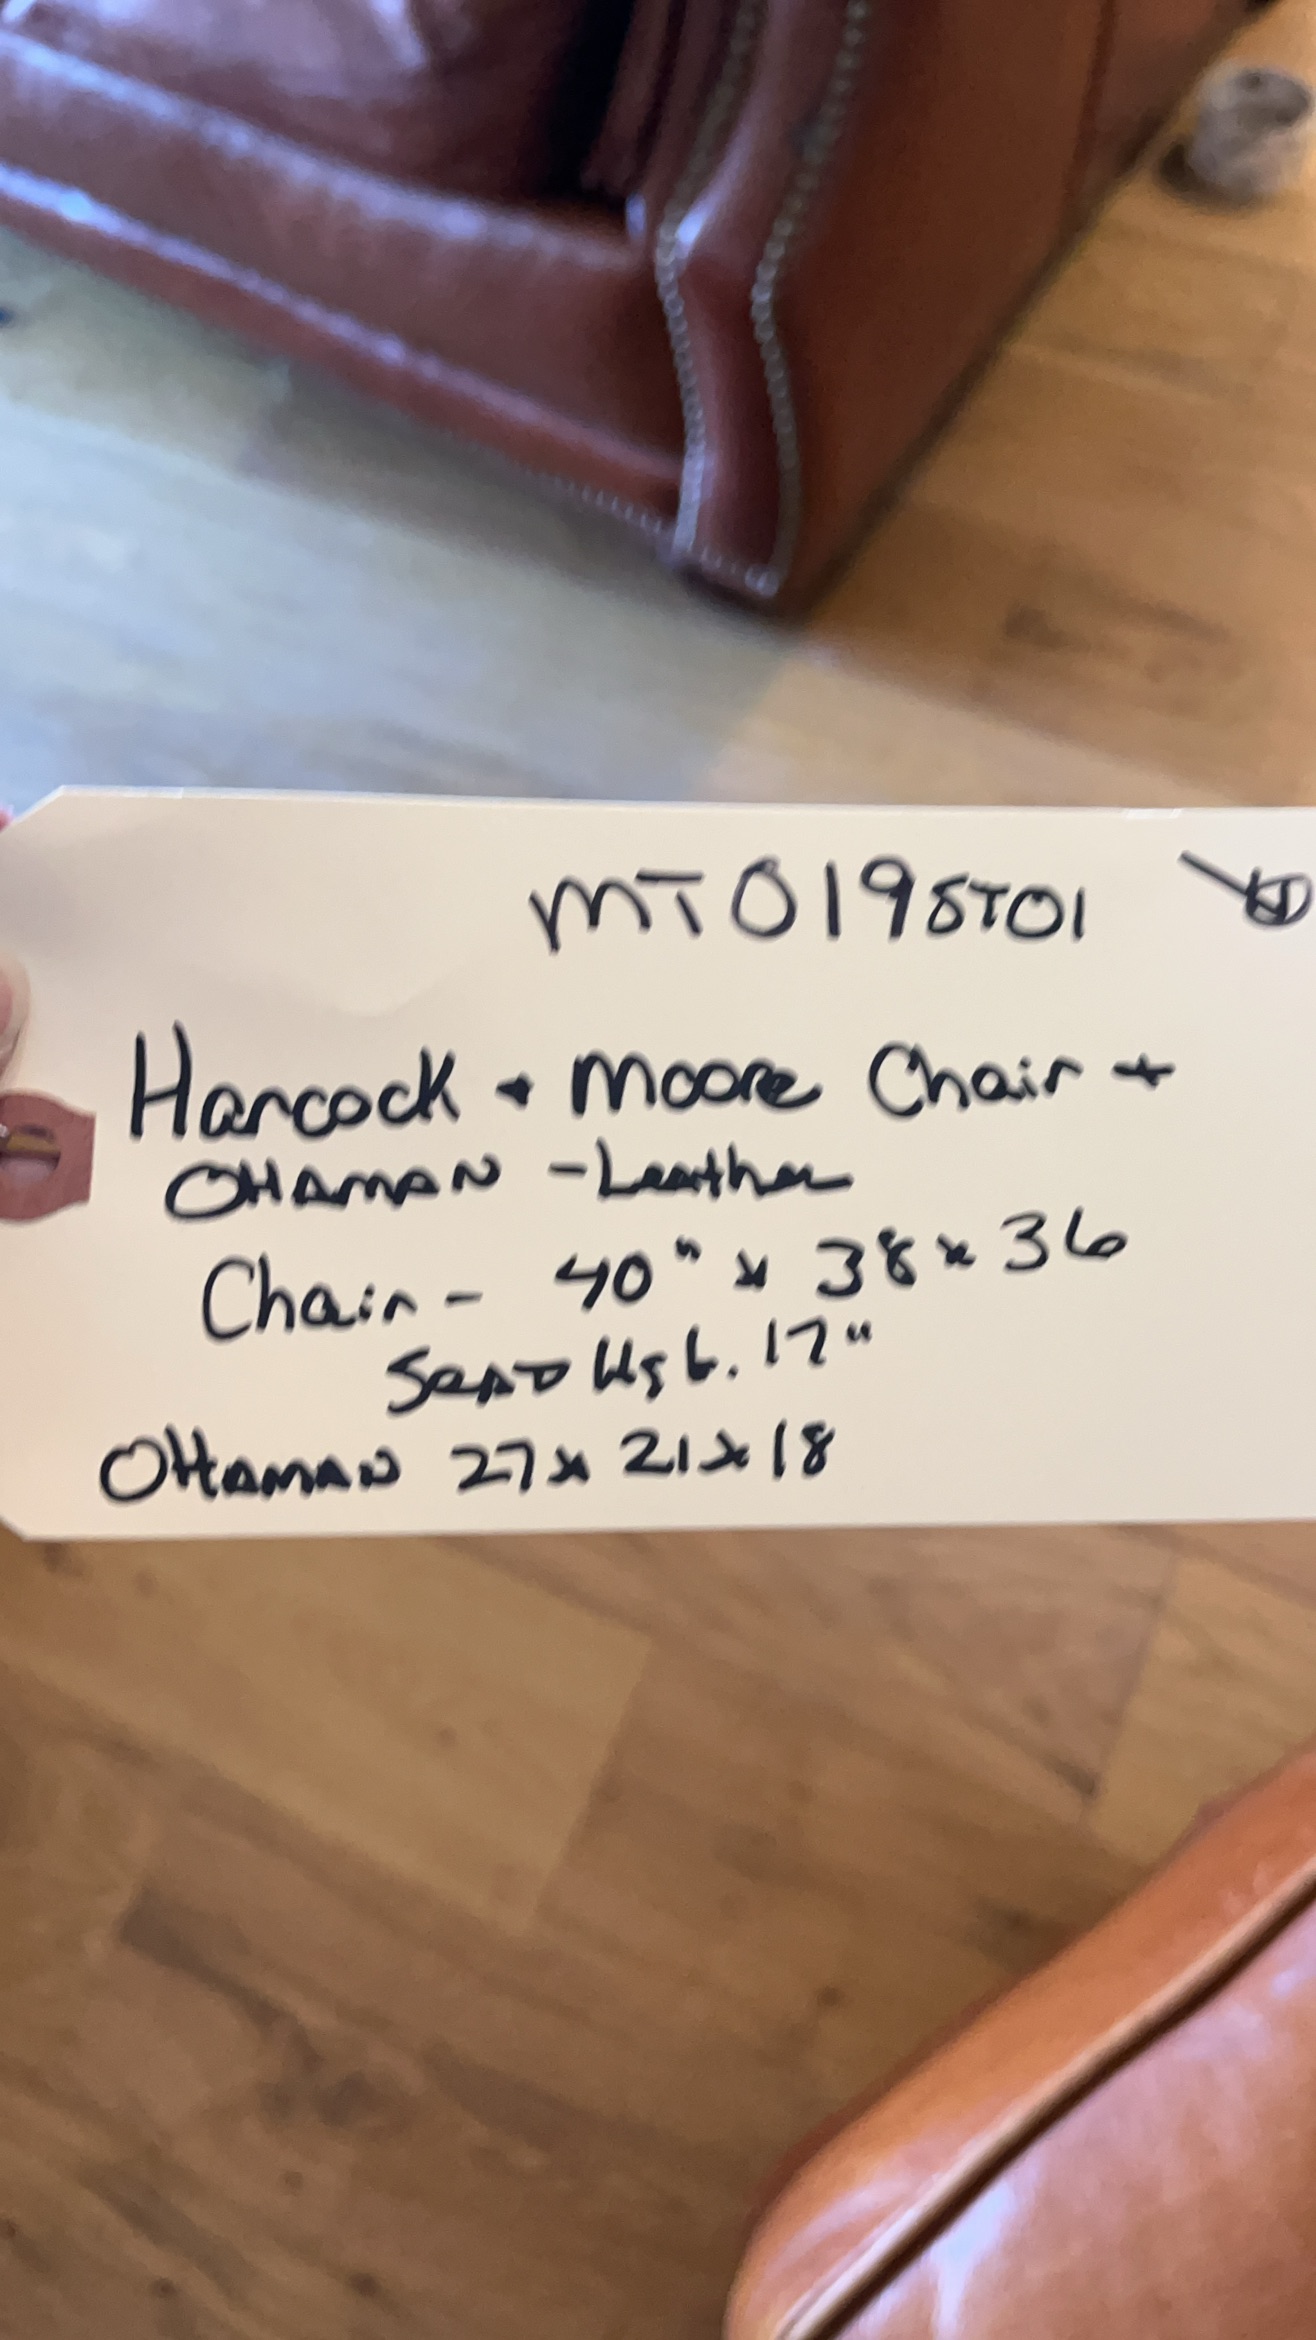 MT0195T01
Hancock + Moore Chair +
OttAMAN - Leather
Chair - 40" x 38 x 36
Seat Hgt. 17"
OttAMAN 27 x 21 x 18